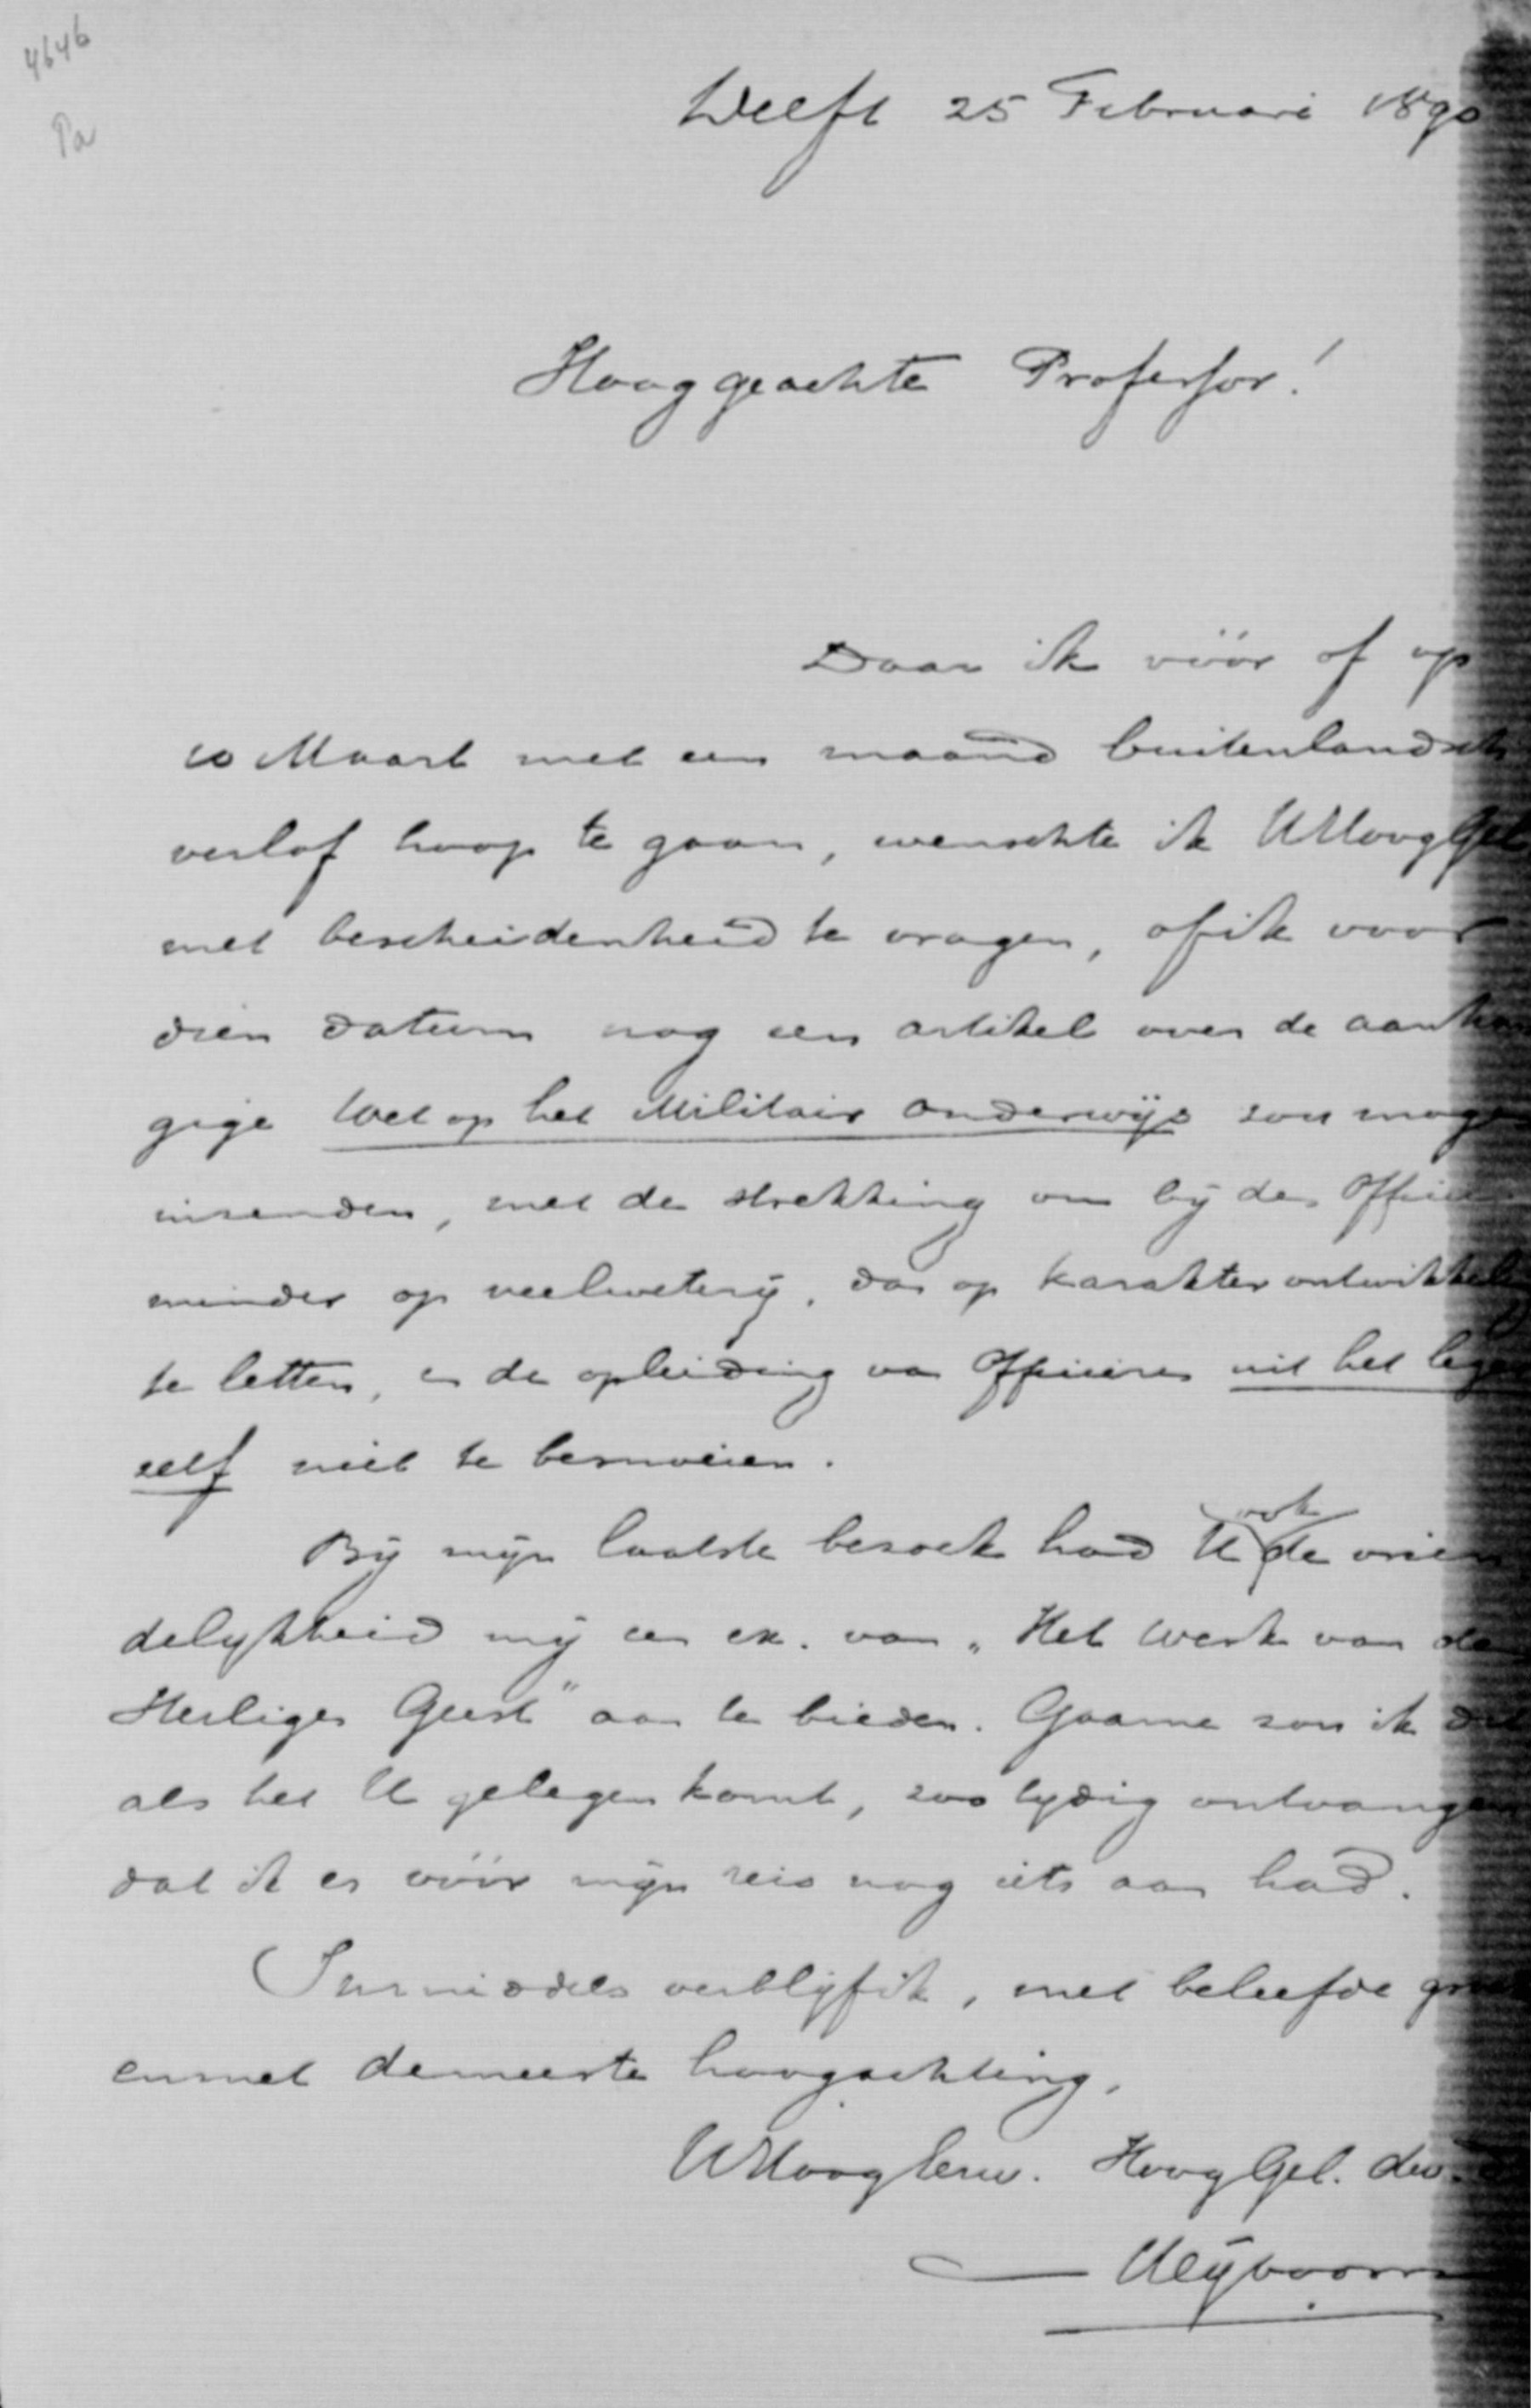 4646
Pa
Delft 25 Februari 1890
Hooggeachte Professor!
Daar ik vóór of op
10 Maart met een maand buitenlandsch
verlof hoop te gaan, wenschte ik UHoogGel
met bescheidenheid te vragen, of ik voor
dien datum nog een artikel over de aanhan
gige Wet op het Militair onderwijs zou mogen
inzenden, met de strekking om bij den Officier
minder op veelweterij, dan op karakterontwikkeling
te letten, en de opleiding van Officieren uit het leger
zelf niet te besnoeien.
Bij mijn laatste bezoek had U ook de vrien
delijkheid mij een ex. van "Het Werk van den
Heiligen Geest" aan te bieden. Gaarne zou ik dit
als het U gelegen komt, zoo tijdig ontvangen
dat ik er vóór mijn reis nog iets aan had.
Inmiddels verblijf ik, met beleefde groete
en met de meeste hoogachting,
UHoogEerw. HoogGel. dw.